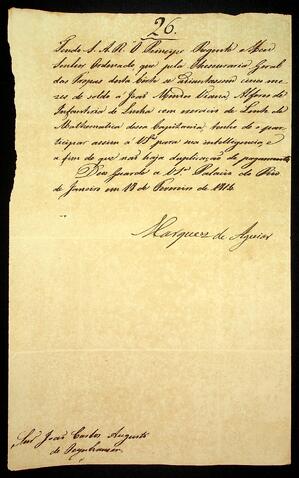 26.
Tendo S. A. R. O Principe Regente e Meu
Senhor Ordenado, que pela Thesouraria Geral
das Tropas desta Corte se adiantassem cinco me-
zes de soldo a José Mendes Vianna Alferes de
Infantaria de Linha com exercicio de Lente de
Mathematica dessa Capitania tenho de o par-
ticipar assim á V. Sª para sua intelligencia, e
a fim de que não haja duplicação de pagamento.
Deos Guarde a V. Sª Palacio do Rio
de Janeiro em 18 de Fevereiro de 1814
Marquez de Aguiar
Snr João Carlos Augusto
de Oeynhausen.